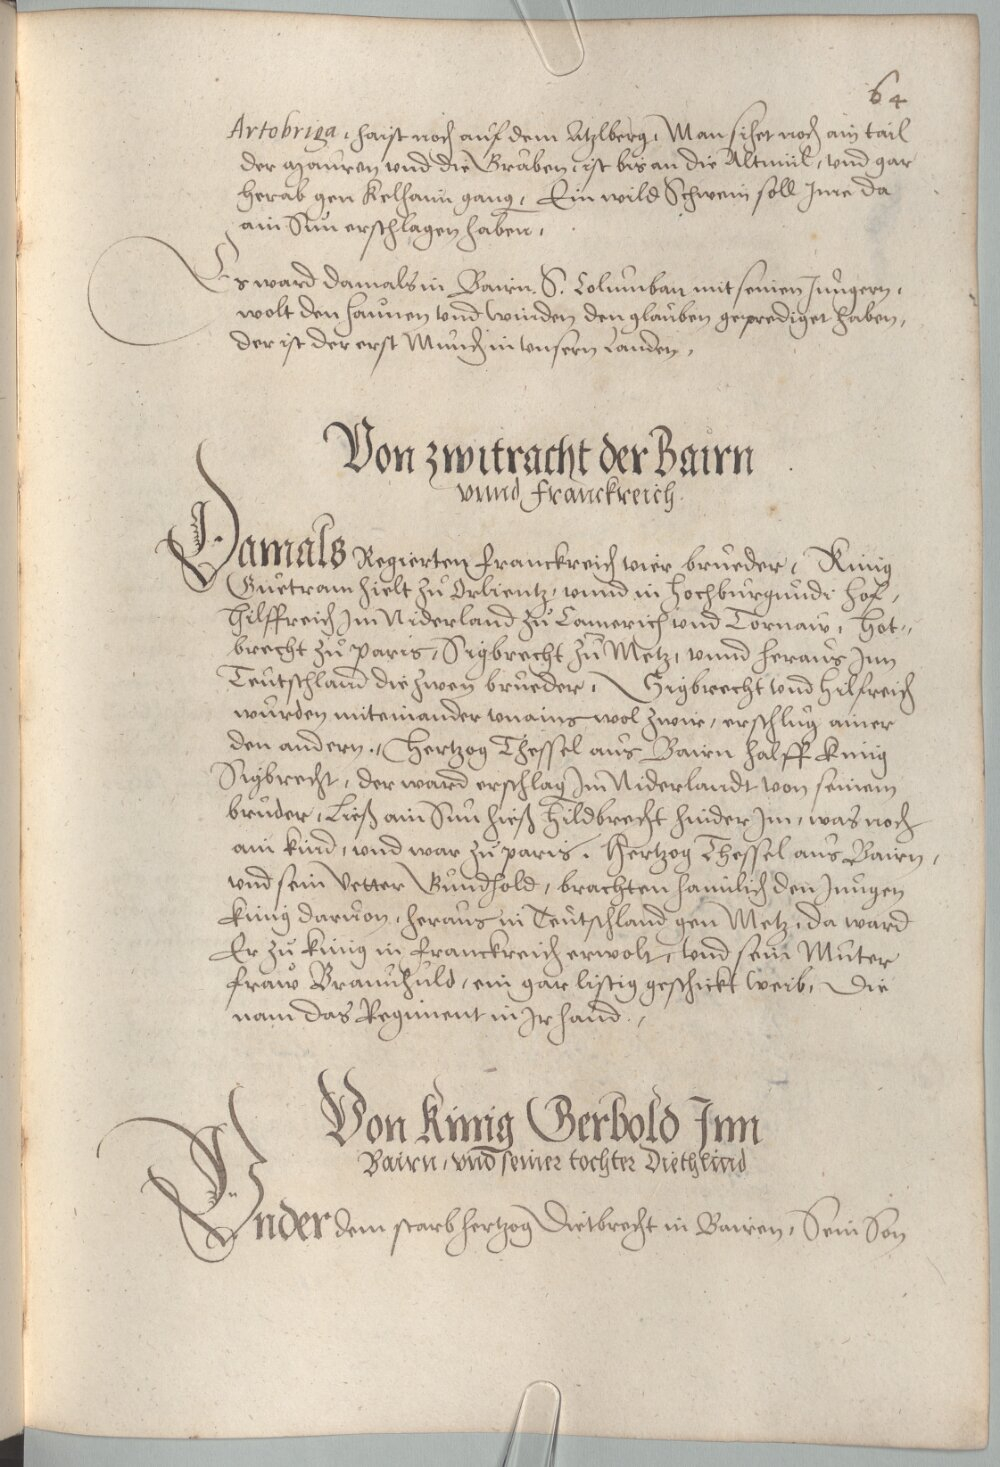 64
Artobriga, haist noch auf dem Atzlberg, Man sihet noch ain tail
der mauren vnd die Graben, ist bis an die Altmül, vnd gar
herab gen Kelhaim gang, Ein wild Schwein soll Jme da
ain Sun erschlagen haben,
Es ward damals in Bairn S. Columban mit seinen Jungern,
wolt den haunen vnd winden den glauben geprediget haben,
der ist der erst Münch in vnsern Landen,
Von zwitracht der Bairn
vnnd Franckreich.
Damals Regierten Franckreich vier brueder, Künig
Guetram hielt zu Orlientz, vnnd in Hochburgundi hof,
Hilffreich Jm Niderland zu Camerich vnd Tornaw, Hot-
brecht zu Paris, Sigbrecht zu Metz, vnnd heraus Jnn
Teutschland die zwen brueder, Sigbrecht vnd Hilfreich
wurden miteinander vnains wol zwir, erschlug ainer
den andern, Hertzog Thessel aus Bairn halff Künig
Sigbrecht, der ward erschlag Jm Niderlandt von seinem
bruder, Ließ ain Sun hieß Hildbrecht hinder Jm, was noch
ain kind, vnd war zu Paris, Hertzog Thessel aus Bairn,
vnd sein Vetter Gundhold, brachten haimlich den Jungen
Künig daruon, heraus in Teutschland gen Metz, da ward
Er zu Künig in Franckreich erwolt, vnd sein Muter
fraw Braunhuld, ein gar listig geschickt weib, Die
nam das Regiment in Jr hand.
Von Künig Gerbold Jnn
Bairn, vnd seiner tochter Diethlind
Vnder dem starb hertzog Dietbrecht in Bairen, Sein Son